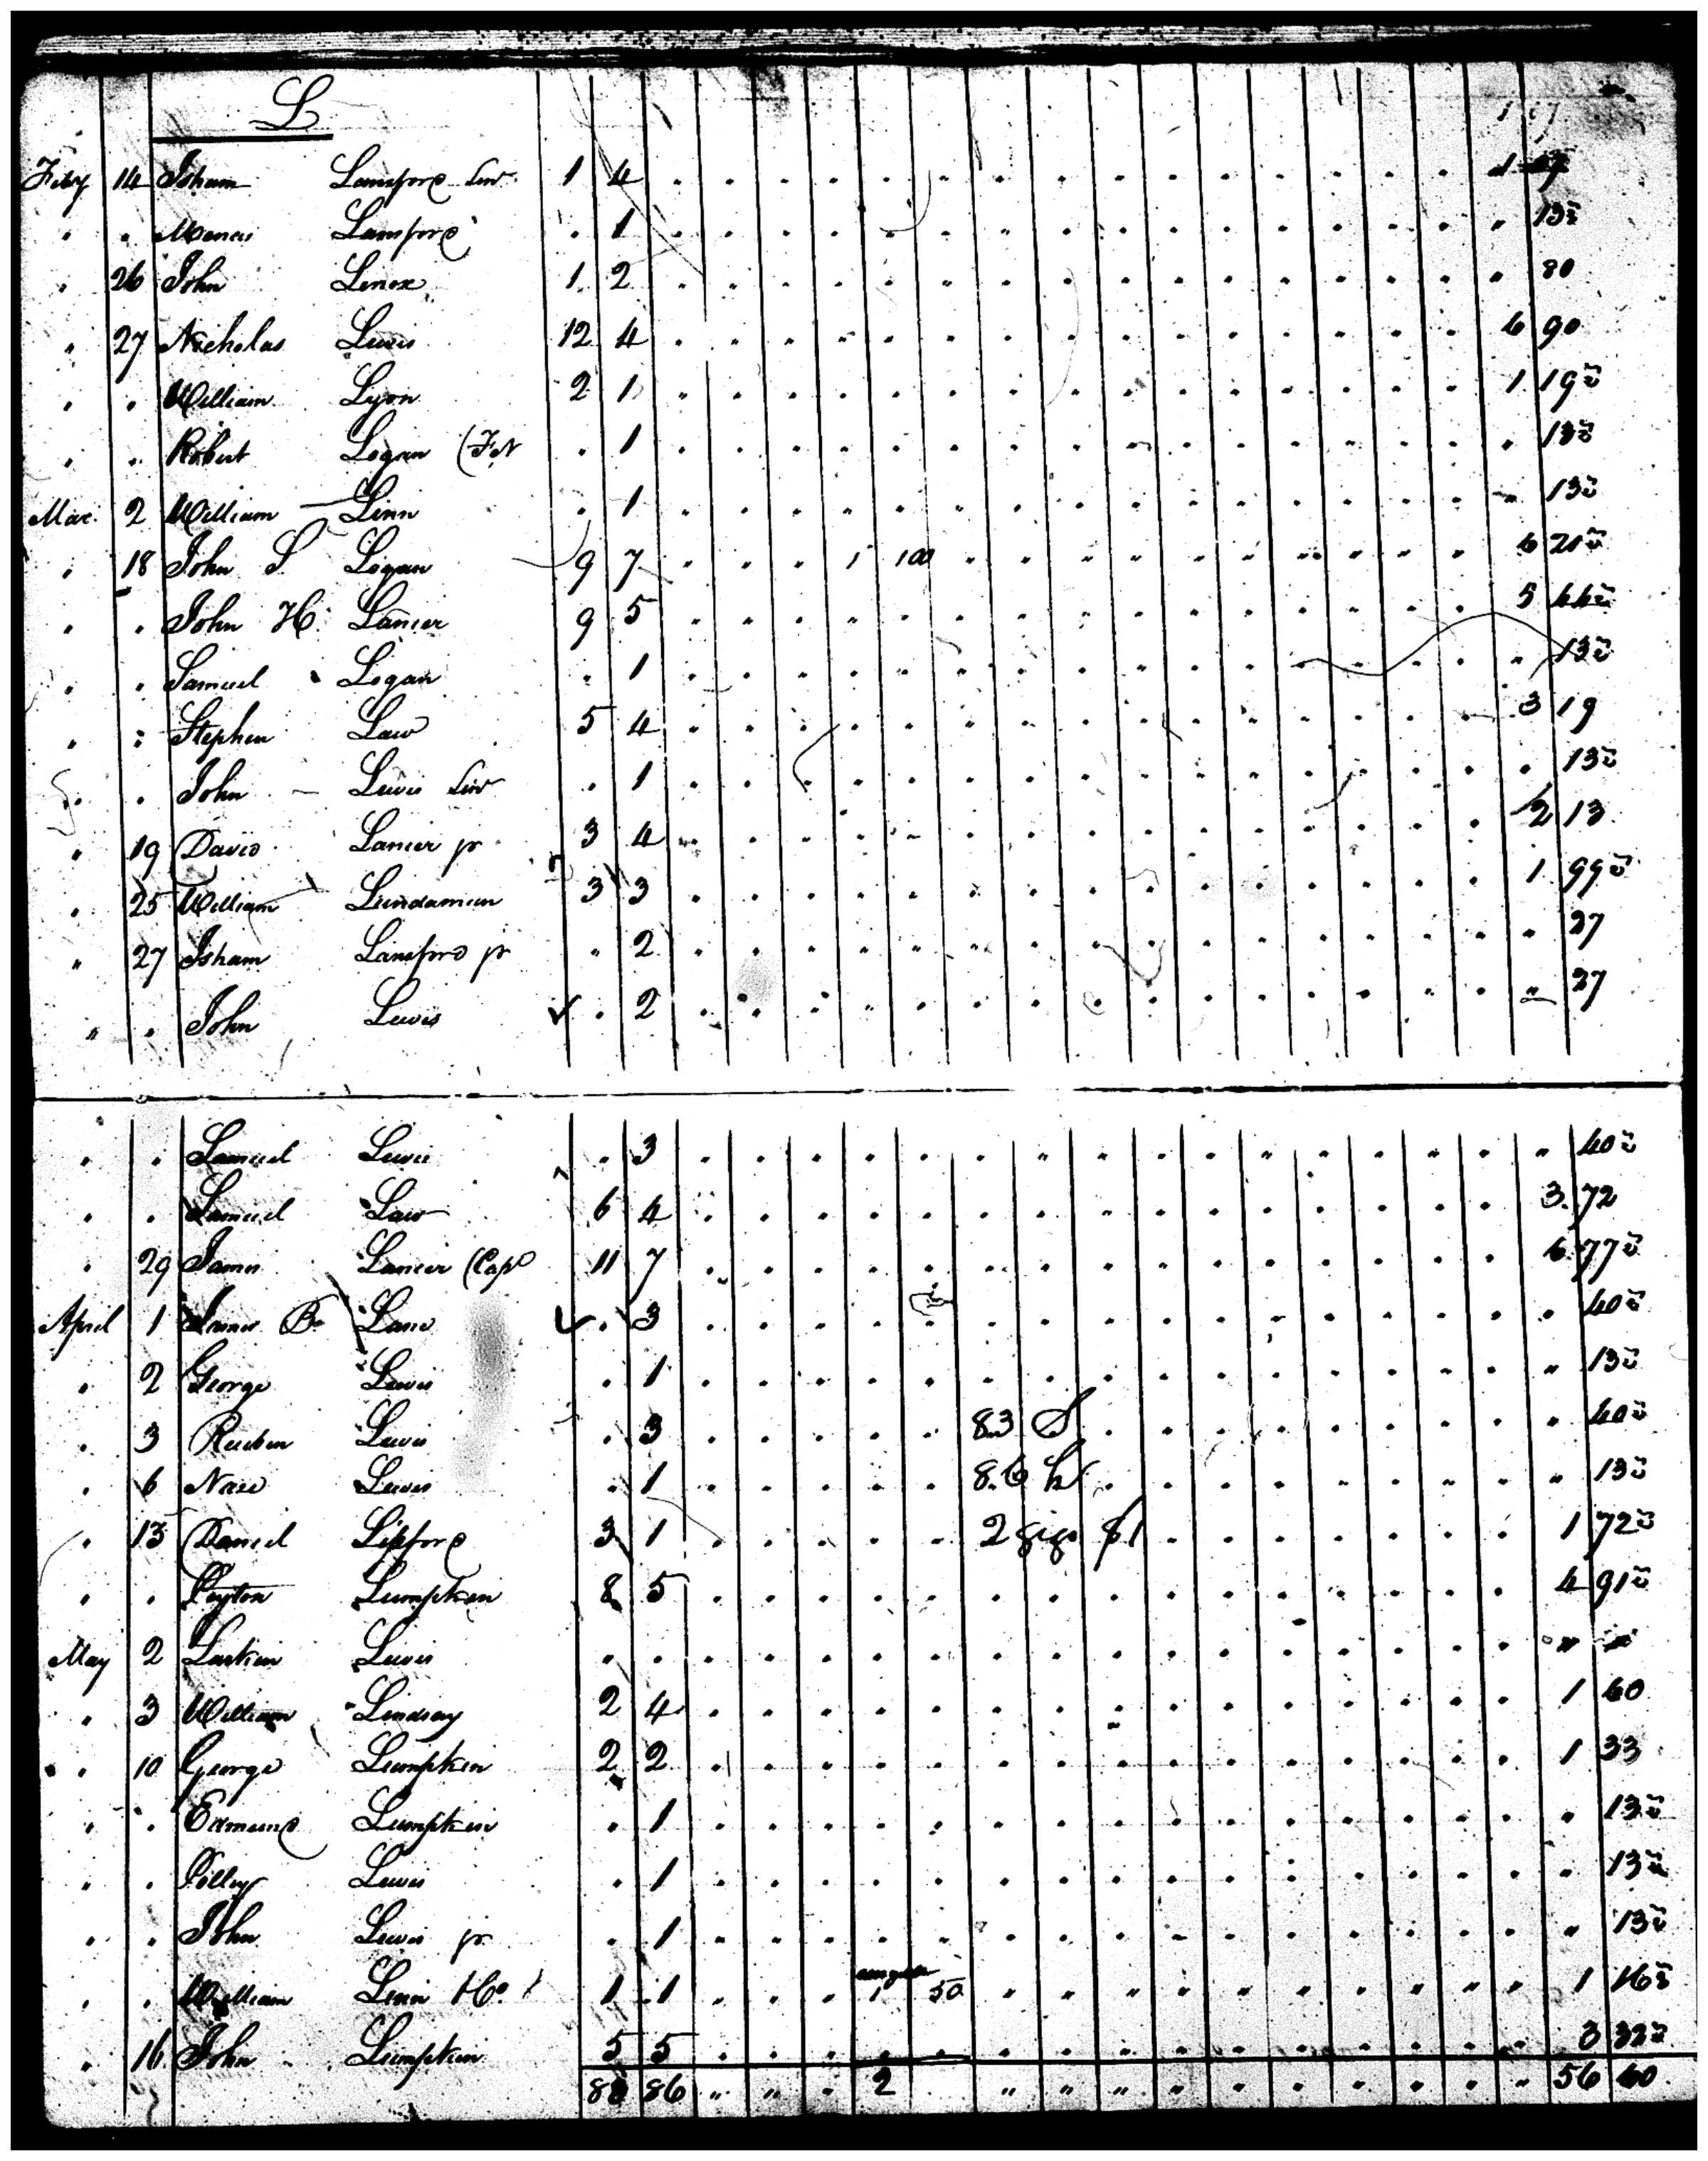 L
1 07
Feby 14 Isham Lansford Sen 1 4 . . . . . . . . . . . . . . . 1 07
" " Lansford . 1 . . . . . . . . . . . . . . . " 13½
" 26 John Lenox 1 2 . . . . . . . . . . . . . . . " 80
" 27 Nicholas Lewis 12 4 . . . . . . . . . . . . . . . 6 90
" " William Lyon 2 1 . . . . . . . . . . . . . . . 1 19½
" " Robert Logan . 1 . . . . . . . . . . . . . . . " 13½
Mar. 2 William Linn . 1 . . . . . . . . . . . . . . . " 13½
" 18 John S Logan 9 7 " " " 1 100 " " " " " " " " " " 6 20½
" " John H. Lanier 9 5 . . . . . . . . . . . . . . . 5 44½
" " Samuel Logan . 1 . . . . . . . . . . . . . . . " 13½
" " Stephen Law 5 4 . . . . . . . . . . . . . . . 3 19
" " John Lewis Sen . 1 . . . . . . . . . . . . . . . " 13½
" 19 David Lanier jr 3 4 . . . . . . . . . . . . . . . 2 13
" 25 William 3 3 . . . . . . . . . . . . . . . 1 99½
" 27 Isham Lansford jr " 2 . . . . . . . . . . . . . . . " 27
" " John Lewis . 2 . . . . . . . . . . . . . . . " 27
" " Samuel Lewis . 3 . . . . . . . . . . . . . . . " 40½
" " Samuel Law 6 4 . . . . . . . . . . . . . . . 3 72
" 29 James Lanier (Capt 11 7 . . . . . . . . . . . . . . . 6 77½
April 1 James B. Lane . 3 . . . . . . . . . . . . . . . " 40½
" 2 George Lewis . 1 . . . . . . . . . . . . . . . " 13½
" 3 Reuben Lewis . 3 . . . . . 83 S . . . . . . . . " 40½
" 6 Lewis . 1 . . . . . 86 h . . . . . . . . " 13½
" 13 Daniel Lipford 3 1 . . . . . 2 gigs $1 . . . . . . . 1 72½
" " Peyton Lumpkin 8 5 . . . . . . . . . . . . . . . 4 91½
May 2 Larkin Lewis . . . . . . . . . . . . . . . . . " "
" 3 William Lindsay 2 4 . . . . . . . . . . . . . . . 1 60
" 10 George Lumpkin 2 2 . . . . . . . . . . . . . . . 1 33
" " Edmund Lumpkin . 1 . . . . . . . . . . . . . . . " 13½
" " Polley Lewis . 1 . . . . . . . . . . . . . . . " 13½
" " John Lewis jr . 1 . . . . . . . . . . . . . . . " 13½
" " William Linn 1 1 . . . 1 50 " " " " " " " " " " 1 16½
" 16 John Lumpkin 5 5 . . . . . . . . . . . . . . . 3 32½
86 " " " 2 " " " " " " " " " " 56 60